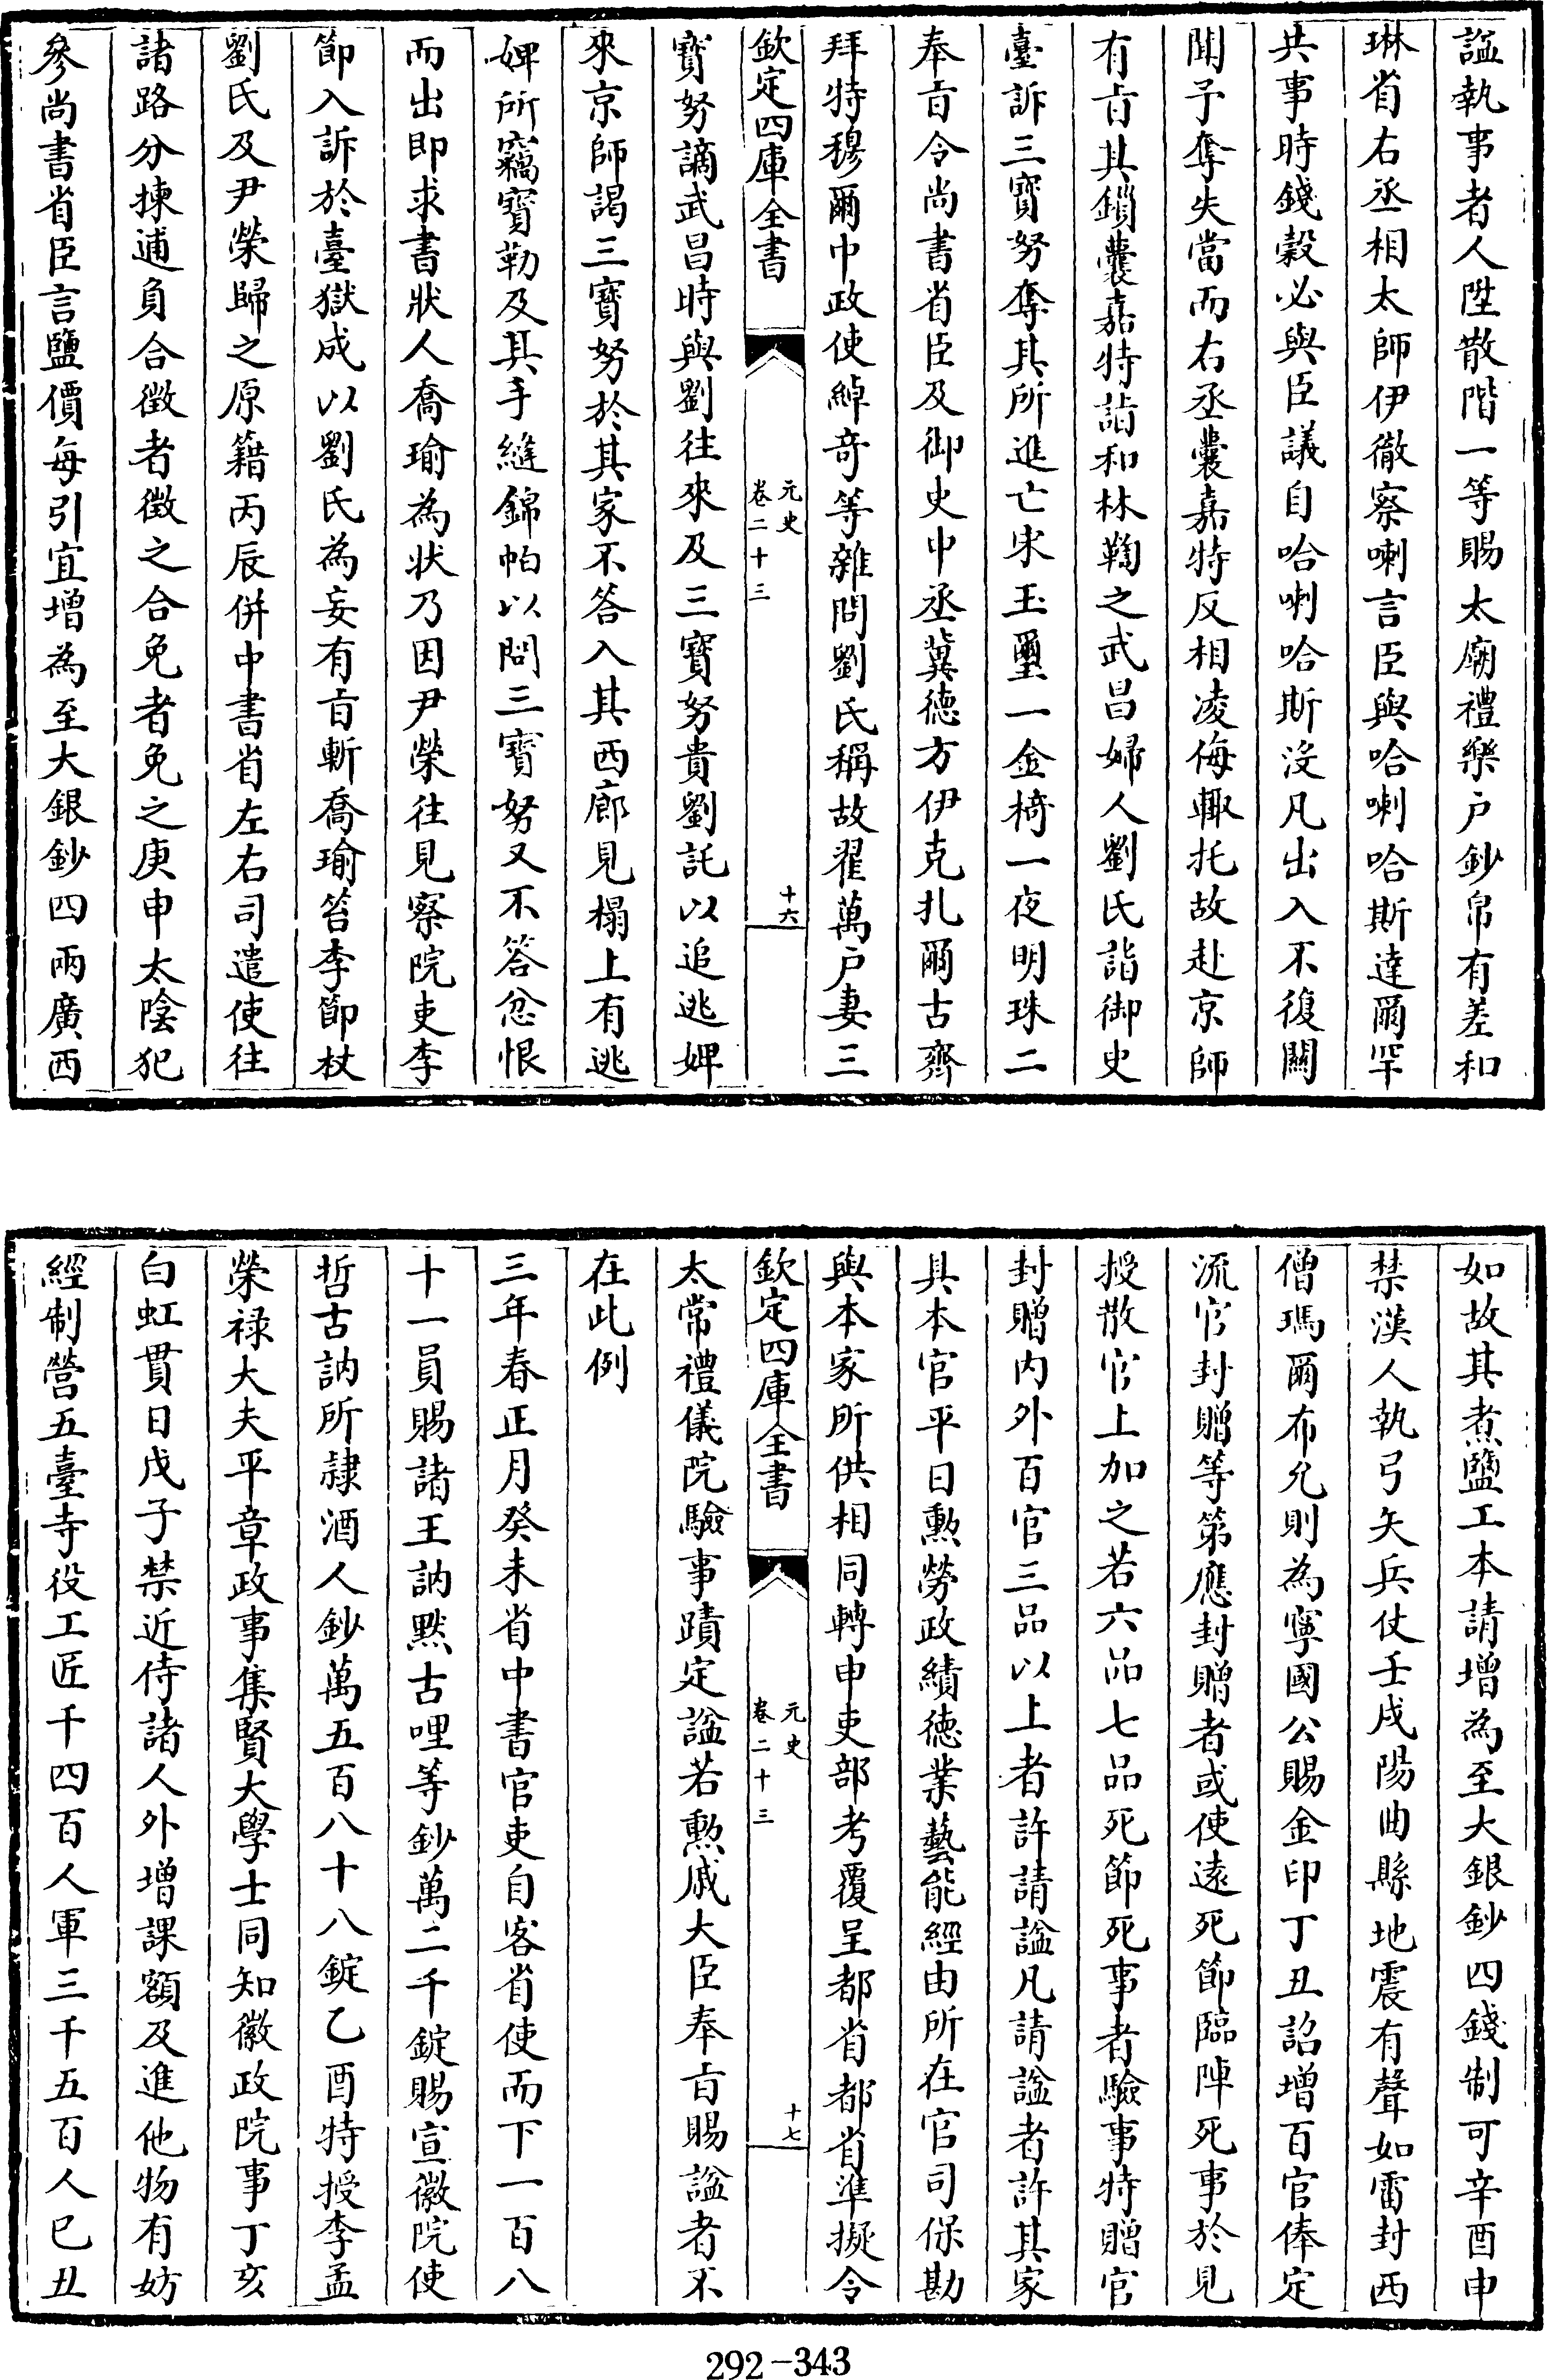 諡執事者人陞散階一等賜太廟禮樂户鈔帛有差和
琳省右丞相太師伊徹察喇言臣與哈喇哈斯達爾罕
共事時錢穀必與臣議自哈喇哈斯沒凡出入不復關
聞予奪失當而右丞囊嘉特反相凌侮輙托故赴京師
有㫖其鎖囊嘉特詣和林鞫之武昌婦人劉氏詣御史
臺訴三寳努奪其所進亡宋玉璽一金椅一夜明珠二
奉㫖令尚書省臣及御史中丞冀德方伊克扎爾古齊
拜特穆爾中政使綽奇等雜問劉氏稱故翟萬户妻三
欽定四庫全書
元史
卷二十三
十六
寳努謫武昌時與劉往來及三寳努貴劉託以追逃婢
來京師謁三寳努於其家不答入其西廊見榻上有逃
婢所竊寳勒及其手縫錦帕以問三寳努又不答忿恨
而出即求書狀人喬瑜為狀乃因尹榮往見察院吏李
節入訴於臺獄成以劉氏為妄有㫖斬喬瑜笞李節杖
劉氏及尹榮歸之原籍丙辰併中書省左右司遣使往
諸路分揀逋負合徵者徵之合免者免之庚申太陰犯
參尚書省臣言鹽價每引宜增為至大銀鈔四兩廣西
如故其煮鹽工本請增為至大銀鈔四錢制可辛酉申
禁漢人執弓矢兵仗壬戌陽曲縣地震有聲如雷封西
僧瑪爾布允則為寧國公賜金印丁丑詔增百官俸定
流官封贈等第應封贈者或使遠死節臨陣死事於見
授散官上加之若六品七品死節死事者驗事特贈官
封贈内外百官三品以上者許請諡凡請諡者許其家
具本官平日勲勞政績德業藝能經由所在官司保勘
與本家所供相同轉申吏部考覆呈都省都省準擬令
欽定四庫全書
元史
卷二十三
十七
太常禮儀院驗事蹟定諡若勲戚大臣奉㫖賜諡者不
在此例
三年春正月癸未省中書官吏自客省使而下一百八
十一員賜諸王訥黙古哩等鈔萬二千錠賜宣徽院使
哲古訥所隷酒人鈔萬五百八十八錠乙酉特授李孟
榮禄大夫平章政事集賢大學士同知徽政院事丁亥
白虹貫日戊子禁近侍諸人外增課額及進他物有妨
經制營五臺寺役工匠千四百人軍三千五百人己丑
292-343